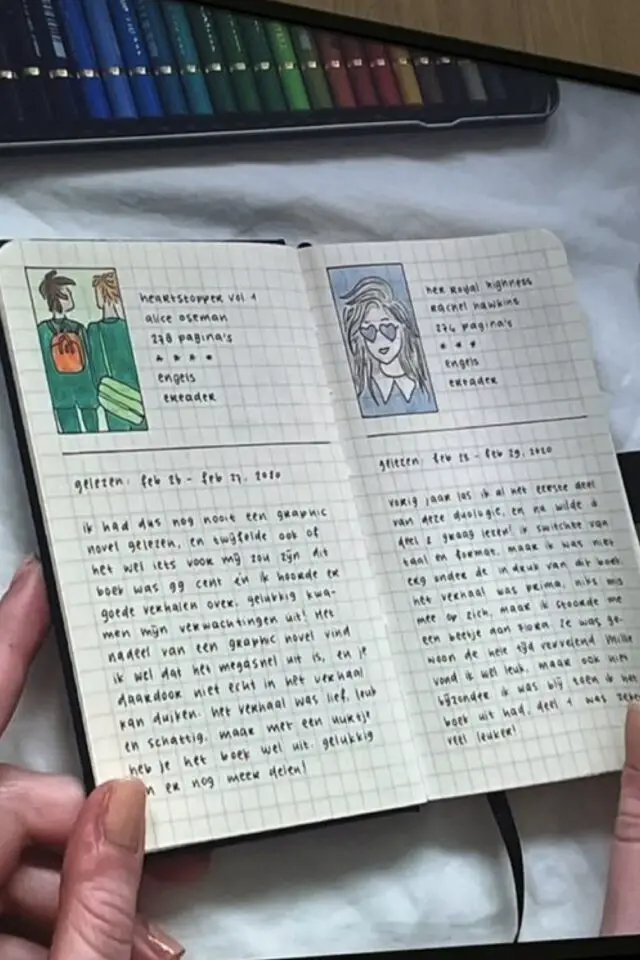 heartstopper vol 1
alice oseman
278 pagina's
* * * *
engels
ereader
gelezen: feb 26 - feb 27, 2020
ik had dus nog nooit een graphic
novel gelezen, en twijfelde ook of
het wel iets voor mij zou zijn dit
boek was 99 cent én ik hoorde er
goede verhalen over. gelukkig kwa-
men mijn verwachtingen uit! het
nadeel van een graphic novel vind
ik wel dat het megasnel uit is, en je
daardoor niet echt in het verhaal
kan duiken. het verhaal was lief, leuk
en schattig. maar met een uurtje
heb je het boek wel uit. gelukkig
n er nog meer delen!
her royal highness
rachel hawkins
274 pagina's
* * *
engels
ereader
gelezen: feb 28 - feb 29, 2020
vorig jaar las ik al het eerste deel
van deze duologie, en na wilde ik
deel 2 graag lezen! ik switchte van
taal en format, maar ik was niet
erg onder de indruk van dit boek.
het verhaal was prima, niks mis
mee op zich, maar ik stoorde me
een beetje aan Flora. ze was ge-
woon de hele tijd vervelend Millie
vond ik wel leuk, maar ook niet
bijzonder. ik was blij toen ik het
boek uit had, deel 1 was
veel leuker!